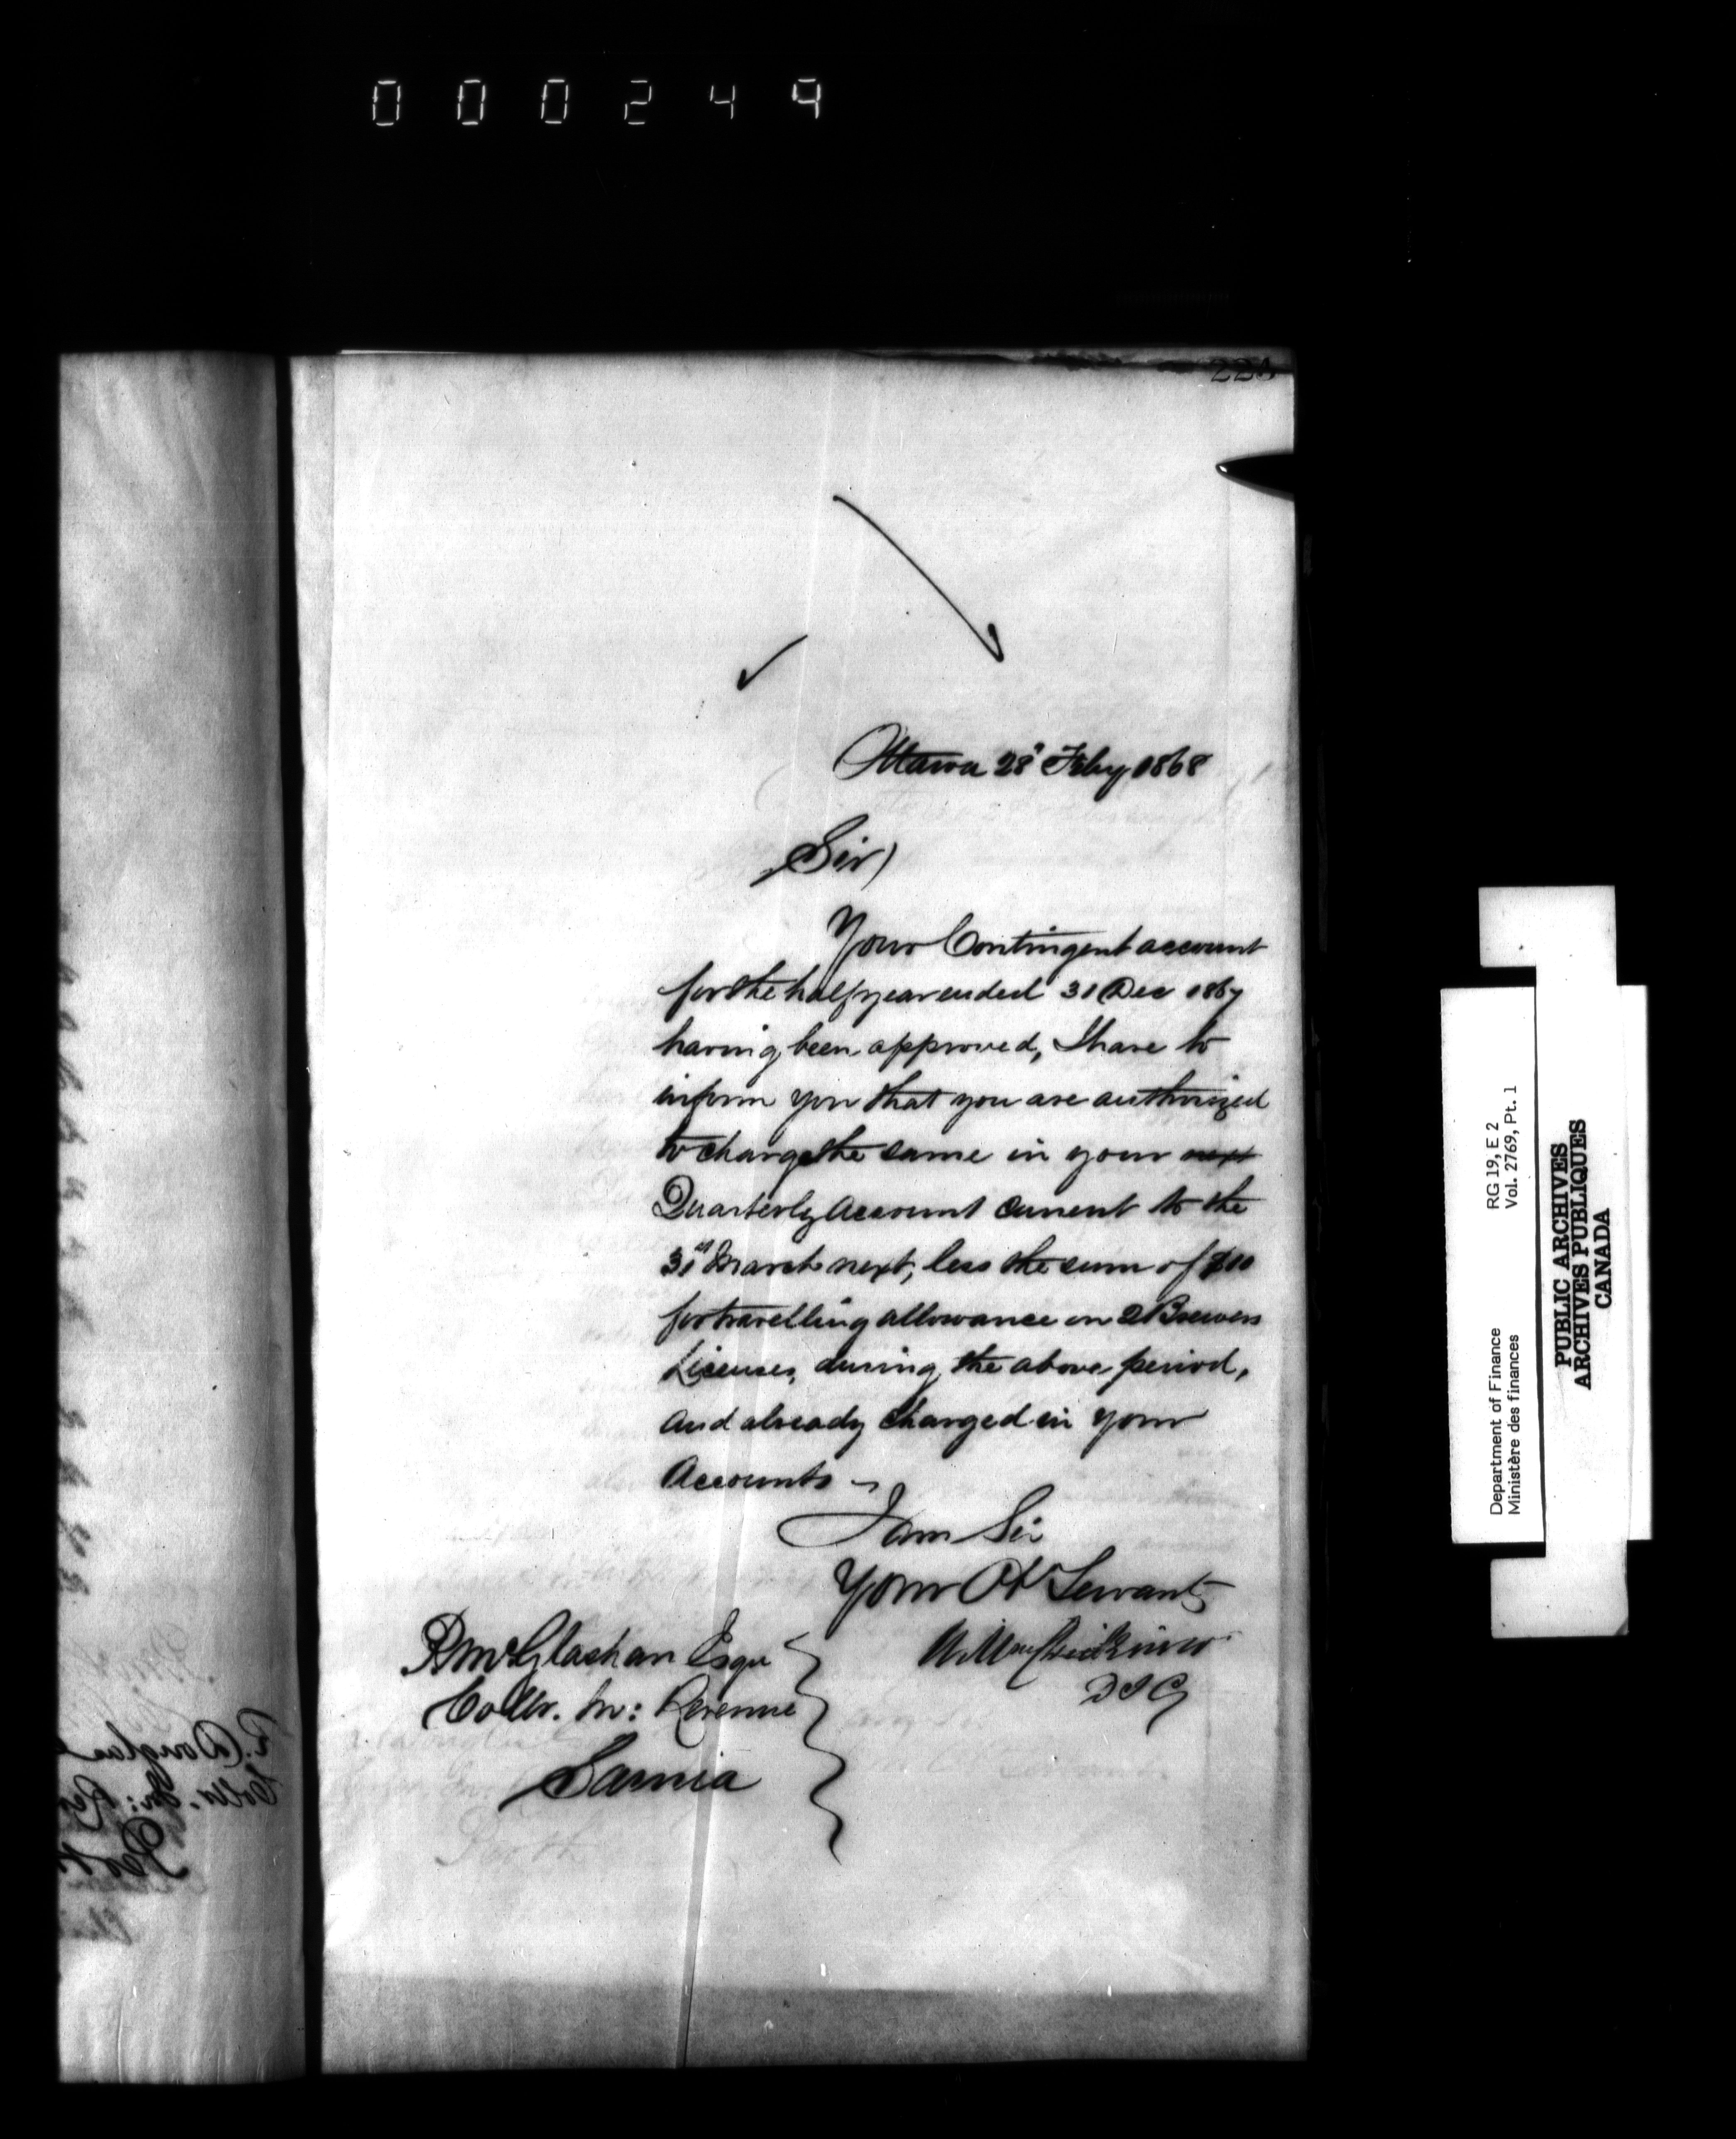 000249
224
Ottawa 28th Feby 1868
Sir,
Your Contingent account
for the half year ended 31 Dec 1867
having been approved, I have to
inform you that you are authorized
to charge the same in your next
Quarterly Account Current to the
31st March next, less the sum of $10
for travelling allowance on 2 Brewers
Licenses, during the above period,
and already charged in your
Accounts —
I am Sir
Your Ob Servant
D I G
P McGlashan Esqu
Collr. In: Revenue
Sarnia
Department of Finance
Ministère des finances
RG 19, E 2
Vol. 2769, Pt. 1
PUBLIC ARCHIVES
ARCHIVES PUBLIQUES
CANADA